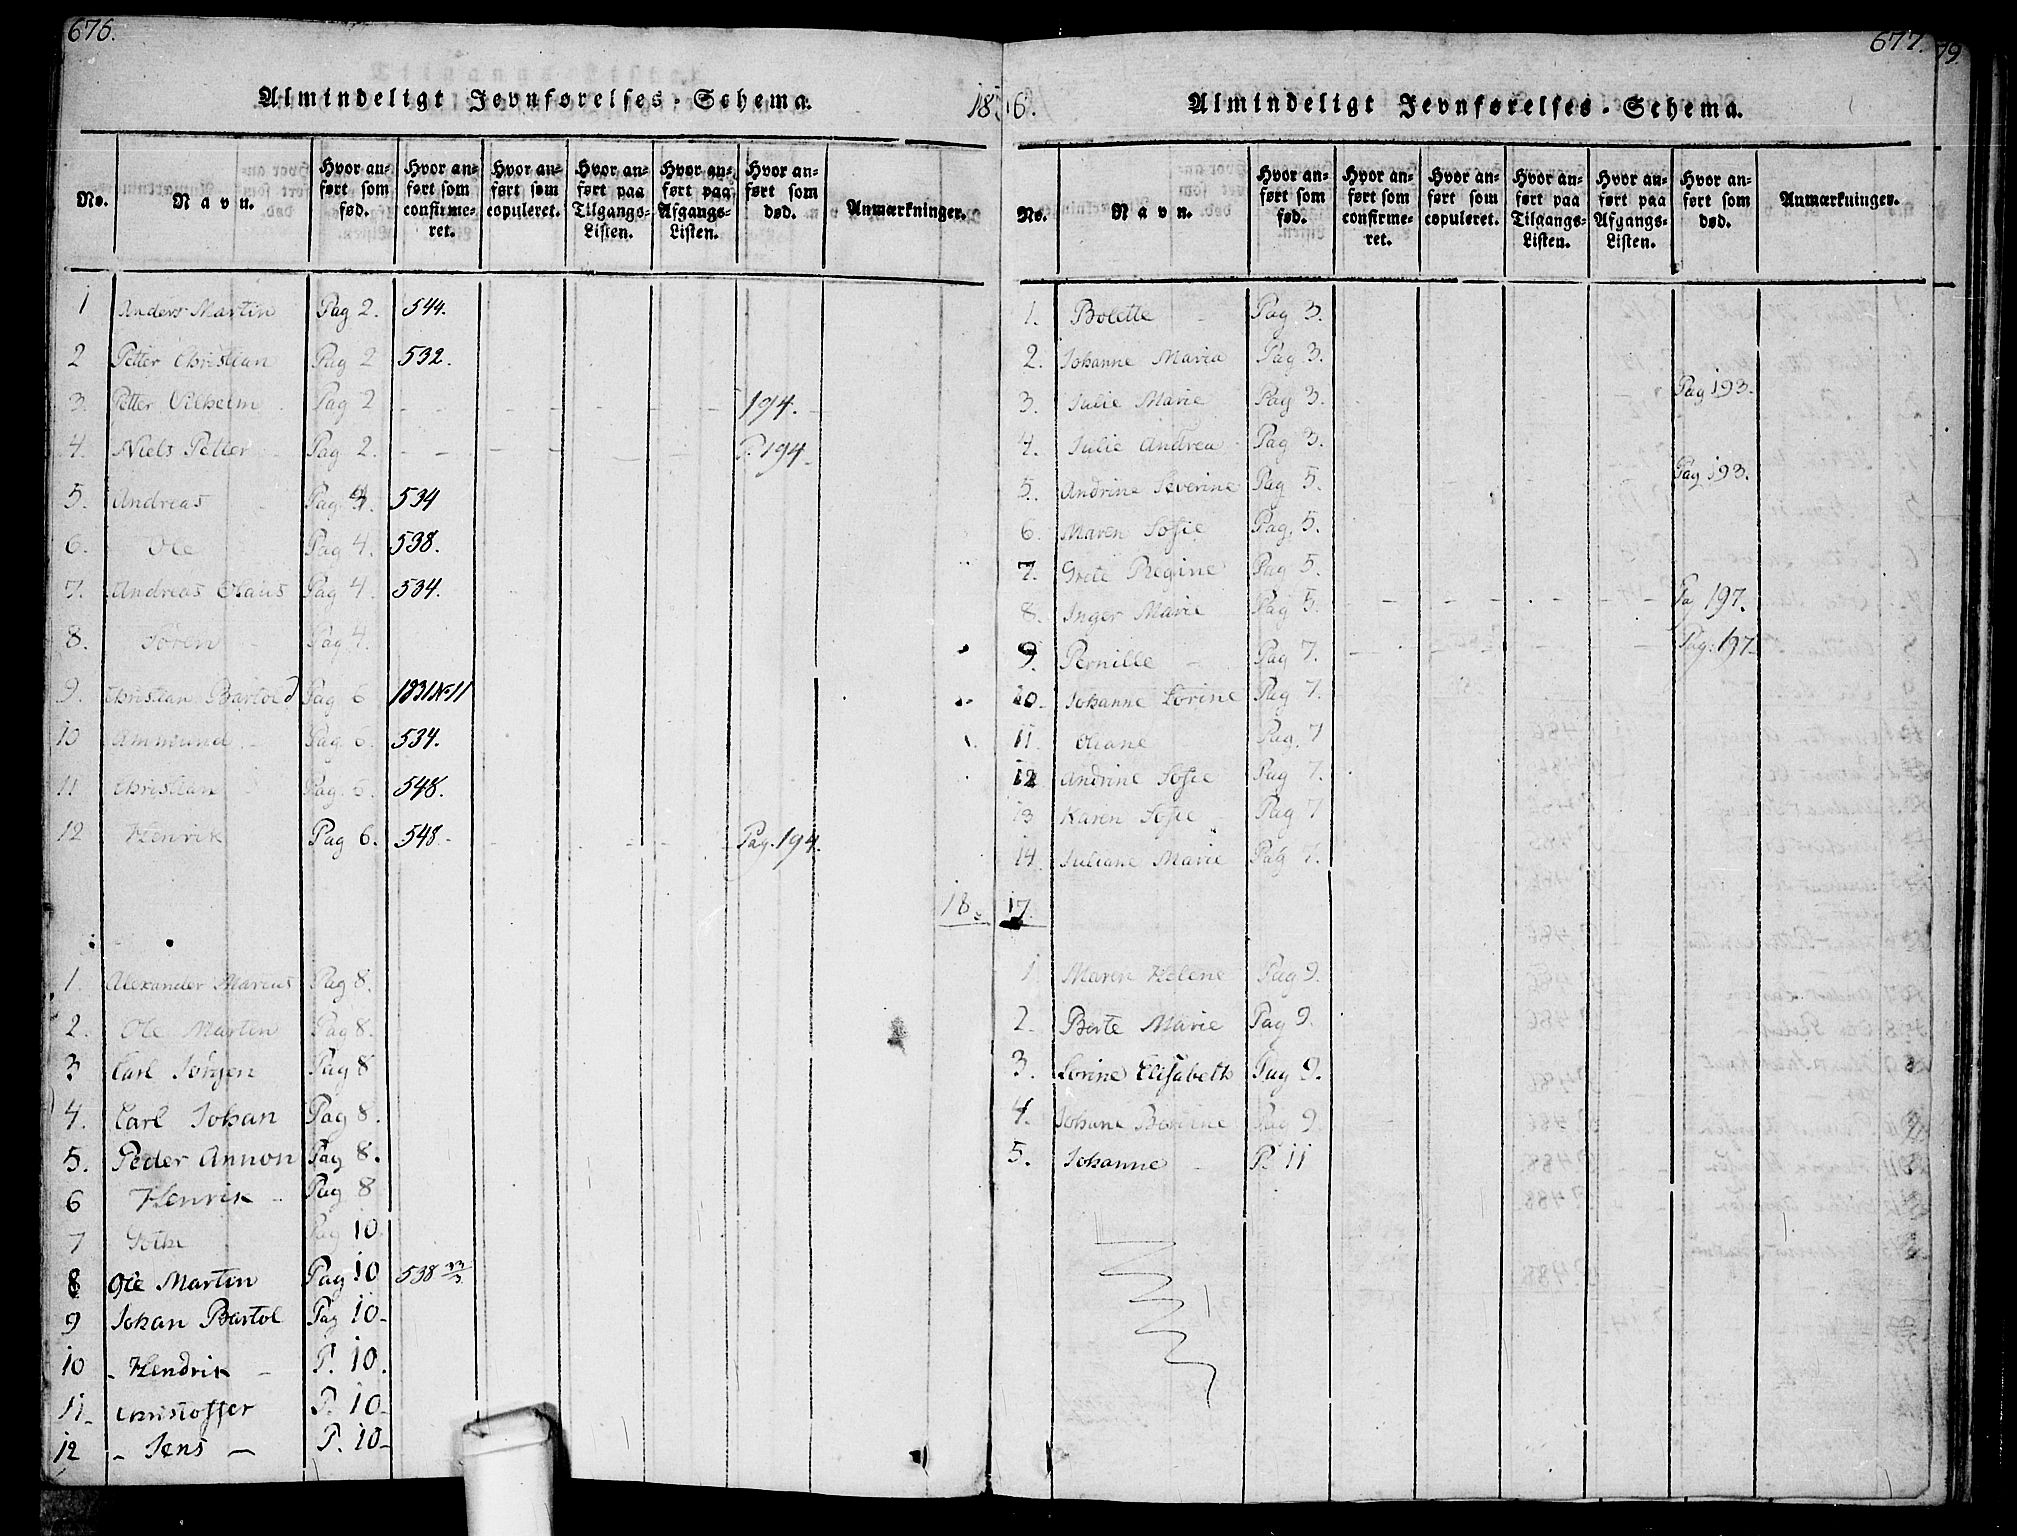 676.
Almindeligt Jevnførelses-Schema.
1816.
No. | Navn. | Hvor anført som fød. | Hvor anført som confirmeret. | Hvor anført som copuleret. | Hvor anført paa Tilgangs-Listen. | Hvor anført paa Afgangs-Listen. | Hvor anført som død. | Anmærkninger.
1 Anders Martin Pag 2. 544.
2 Petter Christian Pag 2 532.
3. Petter Vilhelm Pag 2 194.
4. Niels Petter Pag 2. P. 194.
5. Andreas Pag. 4. 534
6. Ole Pag 4. 538.
7. Andreas Olaus Pag 4. 534.
8. Søren Pag 4.
9. Christian Bartold Pag 6 1831 No 11
10 Ammund Pag. 6. 534.
11 Christian Pag. 6. 548.
12 Henrik Pag 6. 548. Pag. 194.
1817.
1. Alexander Marcus Pag 8.
2. Ole Martin Pag 8.
3 Carl Jørgen Pag 8
4. Carl Johan Pag 8.
5. Peder Annon Pag 8.
6 Henrik Pag 8
7 Pag 10.
8 Ole Martin Pag 10 538
9 Johan Bartol Pag 10.
10 Hendrik P. 10.
11 Christoffer P. 10
12 Jens P. 10
677.
79
Almindeligt Jevnførelses-Schema.
No. | Navn. | Hvor anført som fød. | Hvor anført som confirmeret. | Hvor anført som copuleret. | Hvor anført paa Tilgangs-Listen. | Hvor anført paa Afgangs-Listen. | Hvor anført som død. | Anmærkninger.
1. Bolette Pag 3.
2. Johanne Maria Pag 3.
3. Julie Marie Pag 3. Pag 193.
4. Julie Andrea Pag 3.
5. Andrine Severine Pag 5. Pag 193.
6. Maren Sofie Pag. 5.
7. Grete Regine Pag 5.
8. Inger Marie Pag 5. Pag 197.
9. Pernille Pag 7. Pag. 197
10. Johanne Lorine Pag 7.
11. Oliane Pag. 7
12 Andrine Sofie Pag 7.
13 Karen Sofie Pag 7
14. Juliane Marie Pag 7.
1 Maren Helene Pag 9.
2. Berte Marie Pag 9.
3. Lorine Elisabeth Pag 9.
4. Johane Pag 9.
5. Johanne P. 11